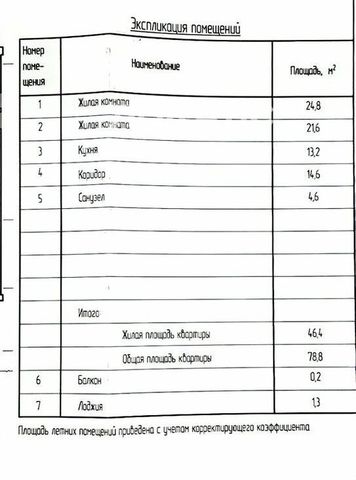 Экспликация помещений
Номер поме- щения Наименование Площадь, м²
1 Жилая комната 24,8
2 Жилая комната 21,6
3 Кухня 13,2
4 Коридор 14,6
5 Санузел 4,6
Итого
Жилая площадь квартиры 46,4
Общая площадь квартиры 78,8
6 Балкон 0,2
7 Лоджия 1,3
Площадь летних помещений приведена с учетом корректирующего коэффициента